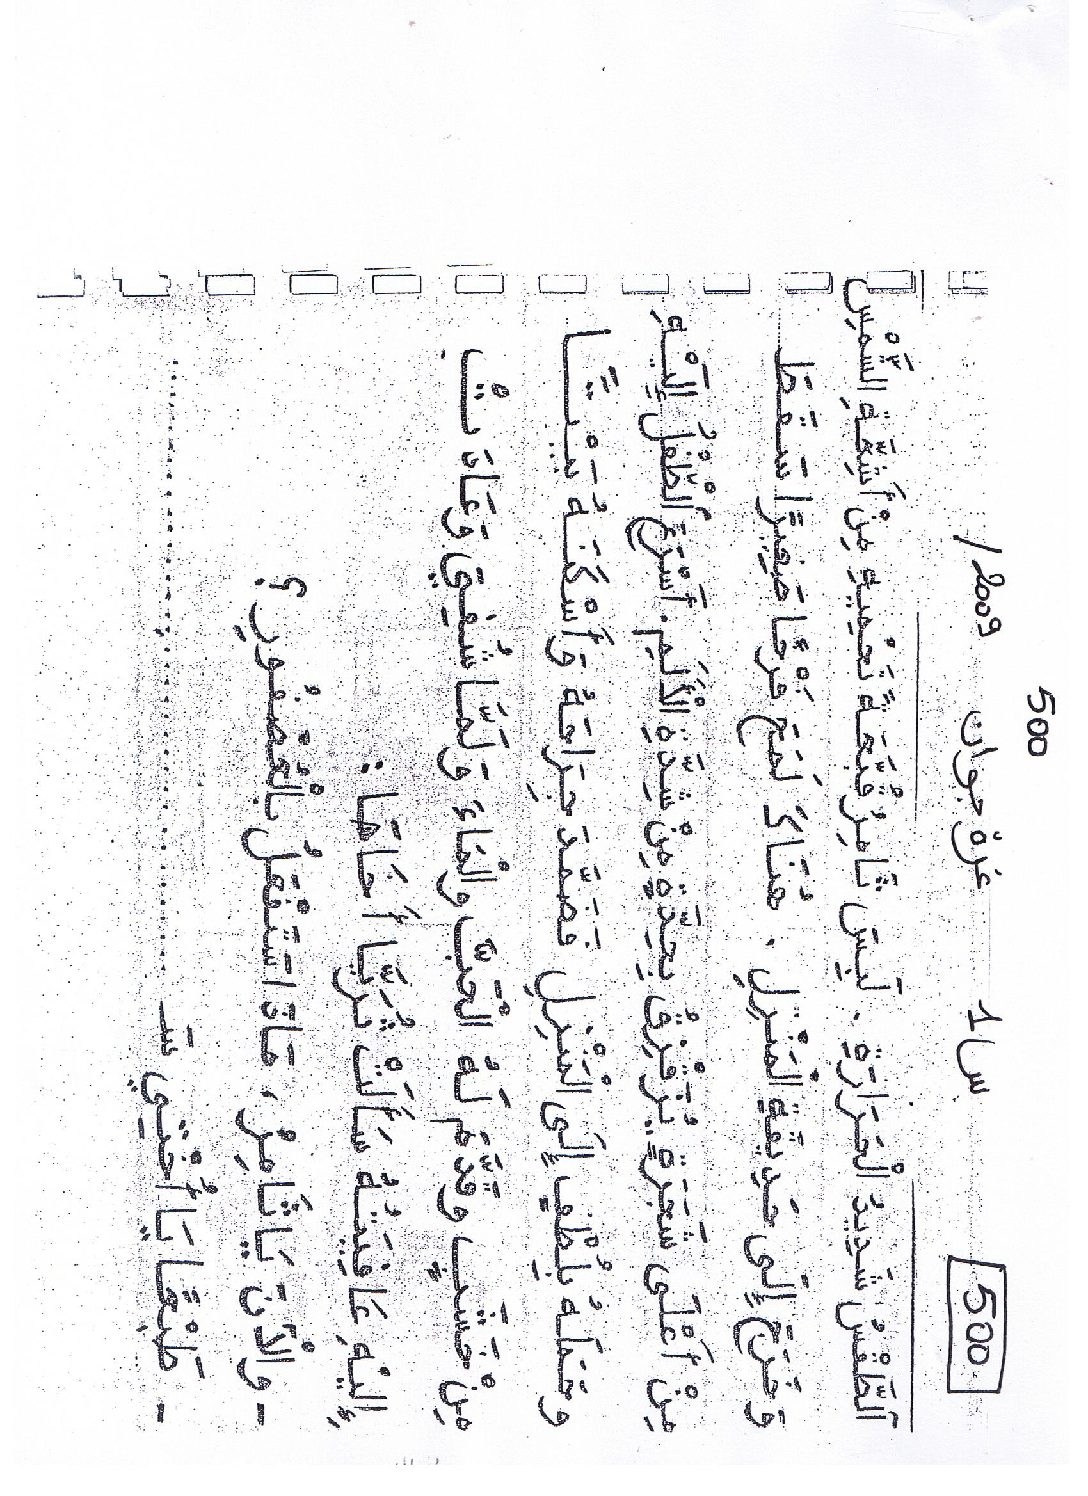 500
500. س1 غرة جوان 2009/
اَلطَّقْسُ شَدِيدُ الْحَرَارَةِ . لَبِسَ ثَامِرُ قُبَّعَةً تَحْمِيهِ مِنْ أَشِعَّةِ الشَّمْسِ
وَخَرَجَ إِلَى حَدِيقَةِ الْمَنْزِلِ . هُنَاكَ لَمَحَ فَرْخًا صَغِيرًا سَقَطَ
مِنْ أَعْلَى شَجَرَةٍ يُرَفْرِفُ بِحِدَّةٍ مِنْ شِدَّةِ الْأَلَمِ. أَسْرَعَ الطِّفْلُ إِلَيْهِ
وحَمَلَهُ بِلُطْفٍ إِلَى الْمَنْزِلِ فَضَمَّدَ جِرَاحَهُ وَأَسْكَنَهُ بَيْتًا
مِنْ خَشَبٍ وقَدَّمَ لَهُ الْحَبَّ والْمَاءَ وَلَمَّا شُفِيَ وَعَادَتْ
إِلَيْهِ عَافِيَتُهُ سَأَلَتْ ثُرَيَّا أَخَاهَا :
- والْآنَ يَا ثَامِرُ، مَاذَا سَتَفْعَلُ بِالْعُصْفُورِ؟
- طَبْعًا يَا أُخْتِي سَـ ..........................